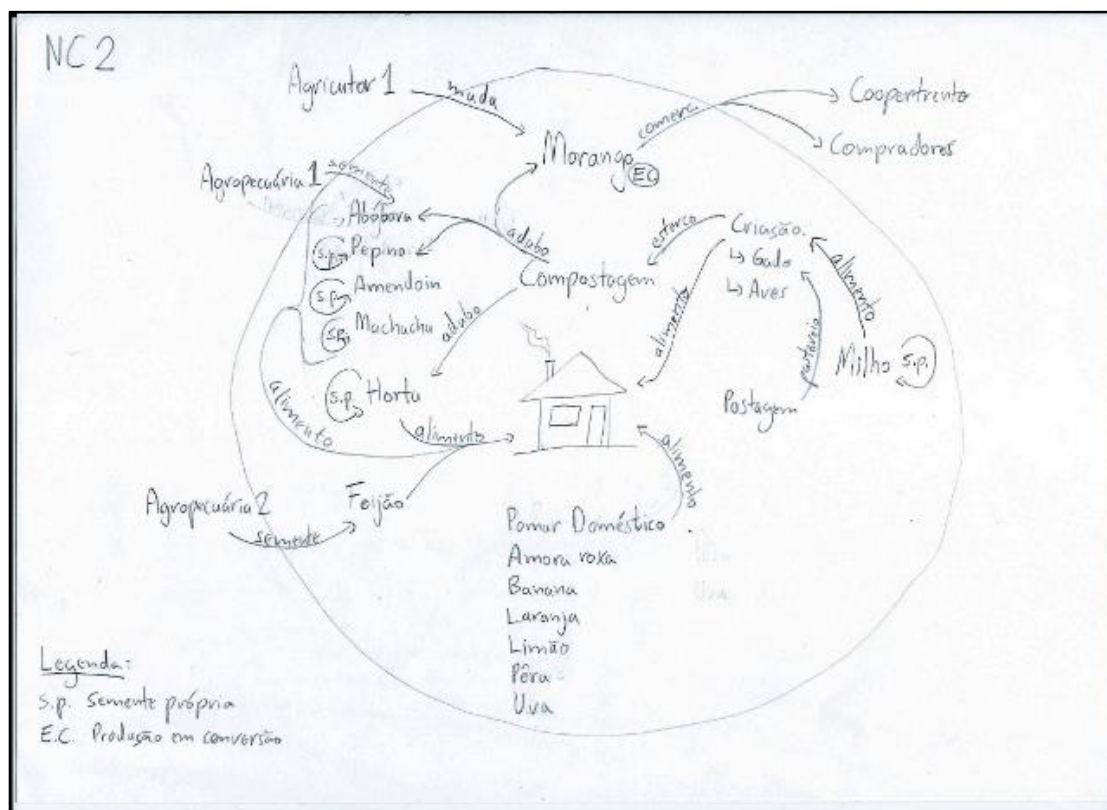 NC2
Agricutor 1
muda
Morango
EC
comerc.
Coopertrento
Compradores
Agropecuária 1
semente
Abóbora
s.p. Pepino
s.p. Amendoin
s.p. Machuchu
adubo
Compostagem
esterco
Criação
↳ Gado
↳ Aves
alimento
Milho s.p.
pastoreio
Pastagem
alimento
adubo
s.p. Horta
alimento
alimento
Agropecuária 2
semente
Feijão
alimento
Pomar Doméstico
Amora roxa
Banana
Laranja
Limão
Pêra
Uva
Uva
Legenda:
s.p. Semente própria
E.C. Produção em conversão